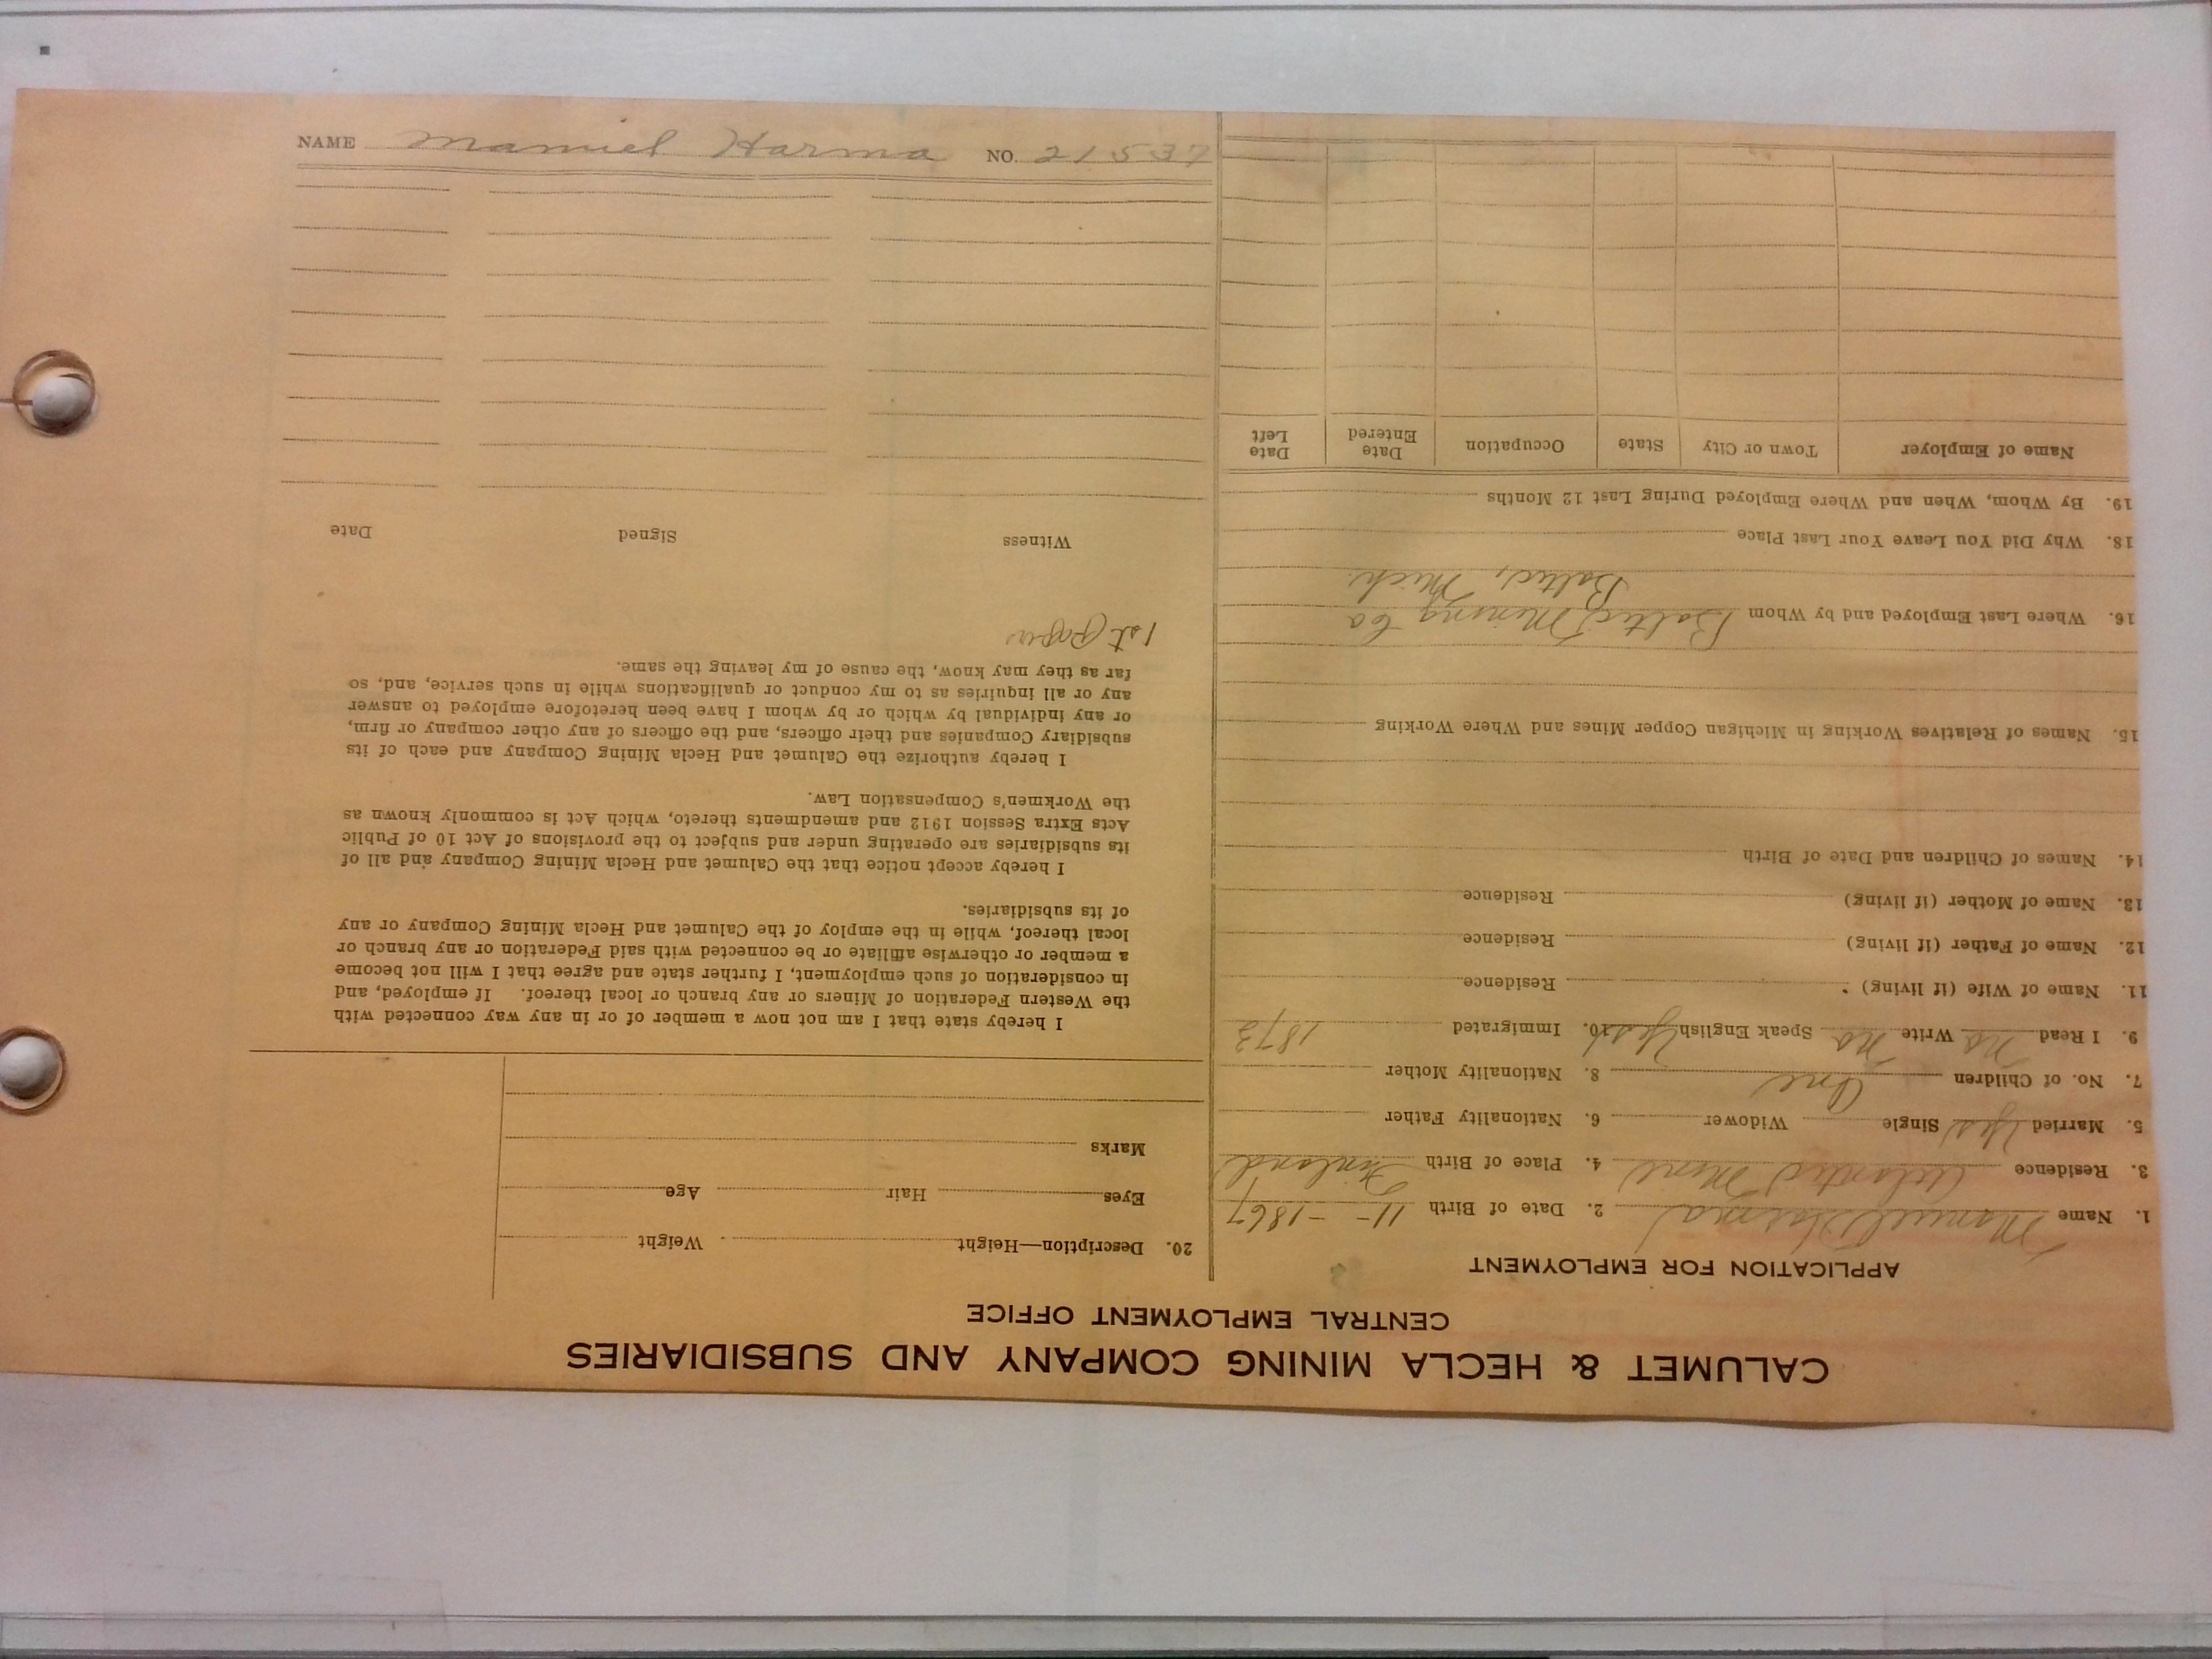 CALUMET & HECLA MINING COMPANY AND SUBSIDIARIES
CENTRAL EMPLOYMENT OFFICE
APPLICATION FOR EMPLOYMENT
1. Name Manuel Harma 2. Date of Birth 11 - - 1867
3. Residence Mine 4. Place of Birth Finland
5. Married Yes Single Widower 6. Nationality Father
7. No. of Children One 8. Nationality Mother
9. I Read No Write No Speak English Yes 10. Immigrated 1873
11. Name of Wife (if living) Residence
12. Name of Father (if living) Residence
13. Name of Mother (if living) Residence
14. Names of Children and Date of Birth
15. Names of Relatives Working in Michigan Copper Mines and Where Working
16. Where Last Employed and by Whom Baltic Mining Co
Baltic, Mich.
18. Why Did You Leave Your Last Place
19. By Whom, When and Where Employed During Last 12 Months
Name of Employer Town or City State Occupation Date Entered Date Left
20. Description—Height Weight
Eyes Hair Age
Marks
I hereby state that I am not now a member of or in any way connected with
the Western Federation of Miners or any branch or local thereof. If employed, and
in consideration of such employment, I further state and agree that I will not become
a member or otherwise affiliate or be connected with said Federation or any branch or
local thereof, while in the employ of the Calumet and Hecla Mining Company or any
of its subsidiaries.
I hereby accept notice that the Calumet and Hecla Mining Company and all of
its subsidiaries are operating under and subject to the provisions of Act 10 of Public
Acts Extra Session 1912 and amendments thereto, which Act is commonly known as
the Workmen's Compensation Law.
I hereby authorize the Calumet and Hecla Mining Company and each of its
subsidiary Companies and their officers, and the officers of any other company or firm,
or any individual by which or by whom I have been heretofore employed to answer
any or all inquiries as to my conduct or qualifications while in such service, and, so
far as they may know, the cause of my leaving the same.
1st Paper
Witness Signed Date
NAME Manuel Harma NO. 21537